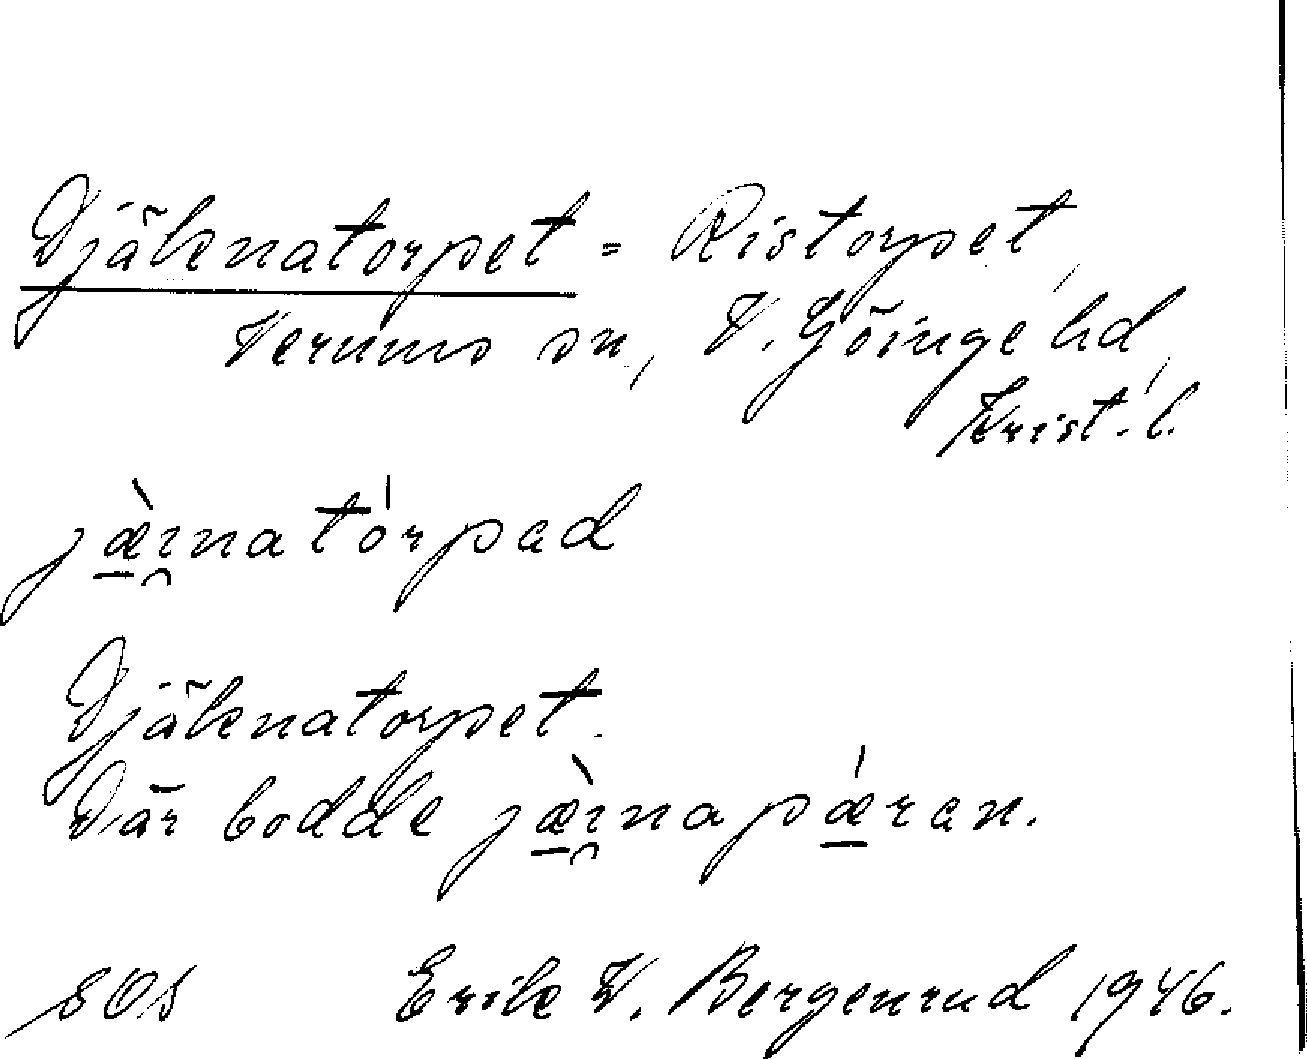 Djäknatorpet = Ristorpet,
Verums sn, V. Göinge hd,
Krist. l.
jæ̱̀ı̯natórpad
Djäknatorpet.
Där bodde jæ̱̀ı̯napǽ̱ran.
SOS Erik W. Bergenrud 1946.